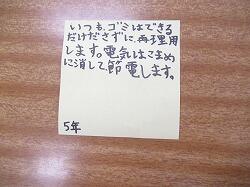 いつも、ゴミはできる
だけださずに、再理用
します。電気はこまめ
に消して、節電します。
5年